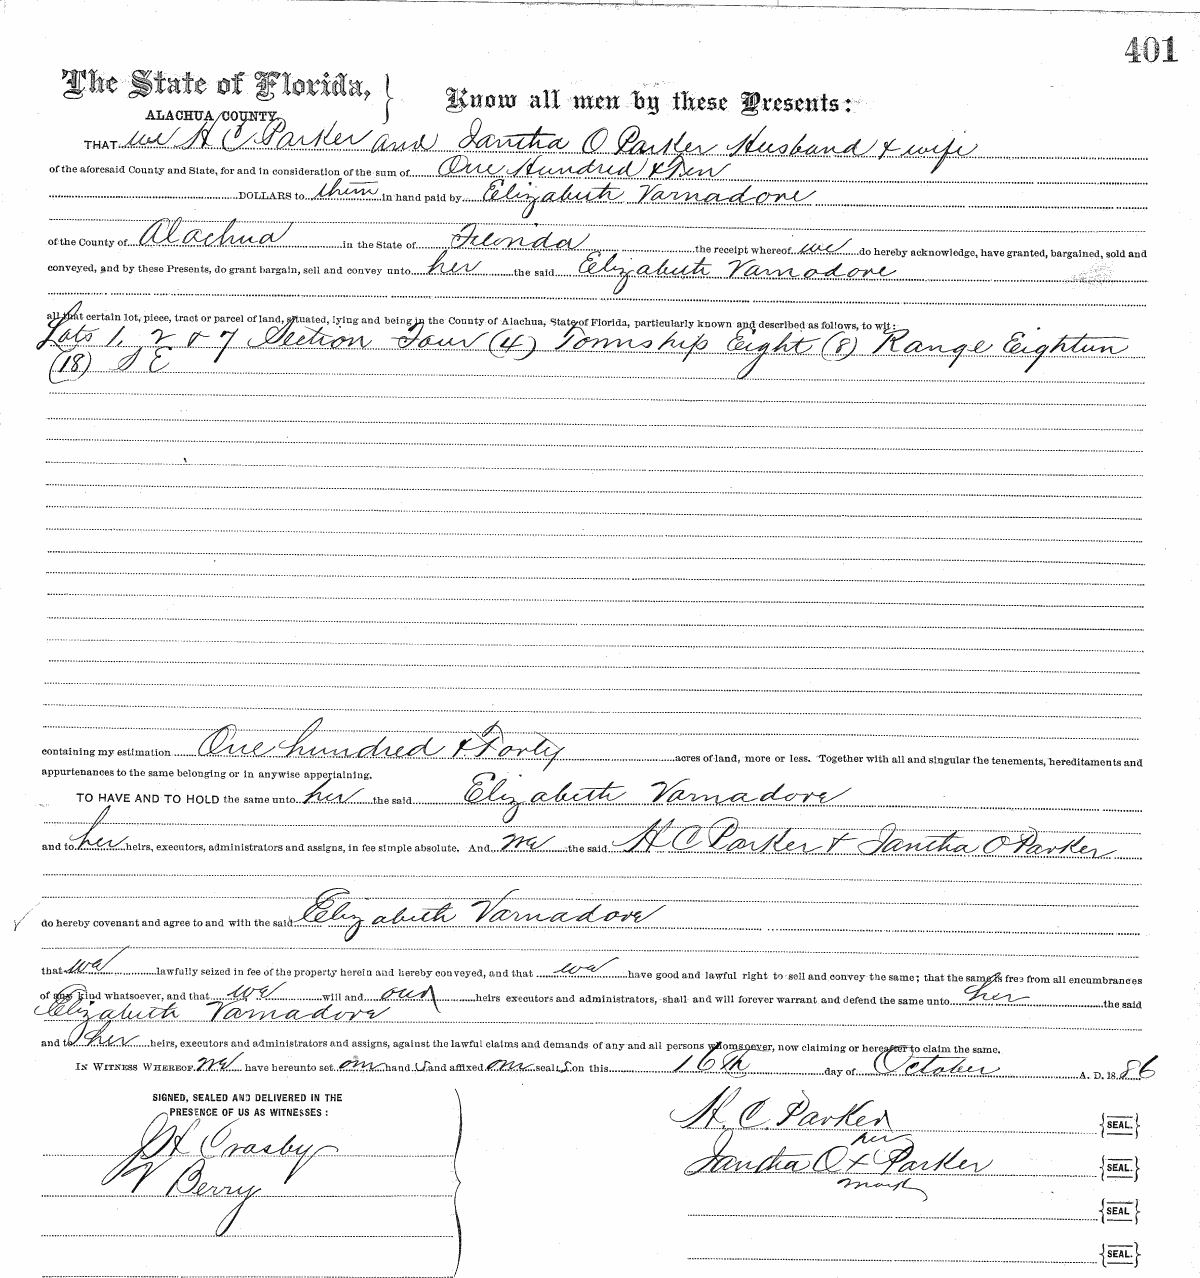 401
The State of Florida, } Know all men by these Presents:
ALACHUA COUNTY.
THAT we H C Parker and Iantha O Parker Husband & wife
of the aforesaid County and State, for and in consideration of the sum of One Hundred & Ten
DOLLARS to them in hand paid by Elizabeth Varnadore
of the County of Alachua in the State of Florida the receipt whereof we do hereby acknowledge, have granted, bargained, sold and
conveyed, and by these Presents, do grant bargain, sell and convey unto her the said Elizabeth Varnadore
all that certain lot, piece, tract or parcel of land, situated, lying and being in the County of Alachua, State of Florida, particularly known and described as follows, to wit:
Lots 1, 2 & 7 Section Four (4) Township Eight (8) Range Eighteen
(18) S E
containing my estimation One hundred & Forty acres of land, more or less. Together with all and singular the tenements, hereditaments and
appurtenances to the same belonging or in anywise appertaining.
TO HAVE AND TO HOLD the same unto her the said Elizabeth Varnadore
and to her heirs, executors, administrators and assigns, in fee simple absolute. And we the said H C Parker & Iantha O Parker
do hereby covenant and agree to and with the said Elizabeth Varnadore
that we lawfully seized in fee of the property herein and hereby conveyed, and that we have good and lawful right to sell and convey the same; that the same is free from all encumbrances
of any kind whatsoever, and that we will and our heirs executors and administrators, shall and will forever warrant and defend the same unto her the said
Elizabeth Varnadore
and to her heirs, executors and administrators and assigns, against the lawful claims and demands of any and all persons whomsoever, now claiming or hereafter to claim the same.
IN WITNESS WHEREOF we have hereunto set our hand s and affixed our seal s on this 16th day of October A. D. 18 86
SIGNED, SEALED AND DELIVERED IN THE
PRESENCE OF US AS WITNESSES:
H. C. Parker {SEAL.}
J H Crosby
her
Iantha O x Parker {SEAL.}
mark
V Berry
{SEAL}
{SEAL.}